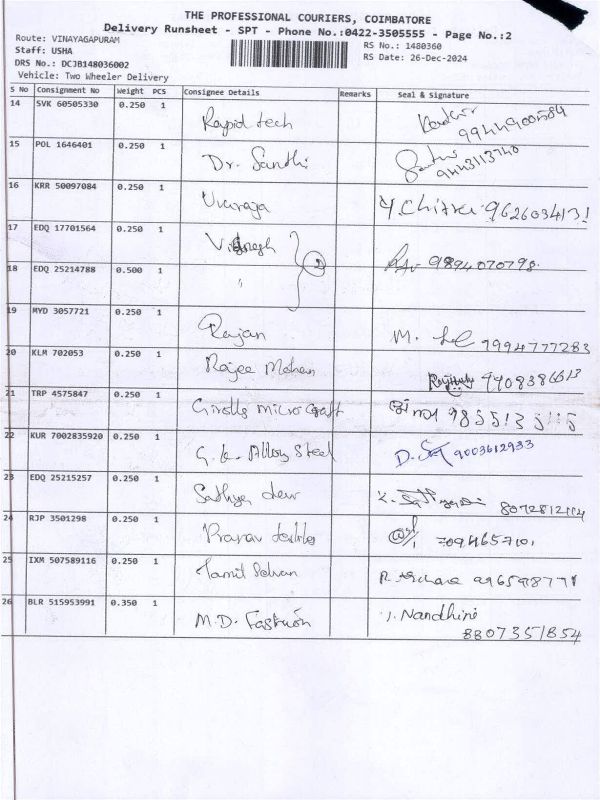 THE PROFESSIONAL COURIERS, COIMBATORE
Delivery Runsheet - SPT - Phone No.:0422-3505555 - Page No.:2
Route: VINAYAGAPURAM
Staff: USHA RS No.: 1480360
DRS No.: DCJB148036002 RS Date: 26-Dec-2024
Vehicle: Two Wheeler Delivery
S No Consignment No Weight PCS Consignee Details Remarks Seal & Signature
14 SVK 60505330 0.250 1 Rapid tech
15 POL 1646401 0.250 1 Dr. Santhi 9443113740
16 KRR 50097084 0.250 1 Y. Chitra
17 EDQ 17701564 0.250 1 2 9894070798
18 EDQ 25214788 0.500 1 "
19 MYD 3057721 0.250 1 Rajan M. 9994777283
20 KLM 702053 0.250 1 Rajee Mohan
21 TRP 4575847 0.250 1 Micro Craft
22 KUR 7002835920 0.250 1 G.K. Alloy Steel D. 9003612933
23 EDQ 25215257 0.250 1 Sathya
24 RJP 3501298 0.250 1 Pranav
25 IXM 507589116 0.250 1 Tamil Selvan
26 BLR 515953991 0.350 1 M.D. Fashion Nandhini
8807351854